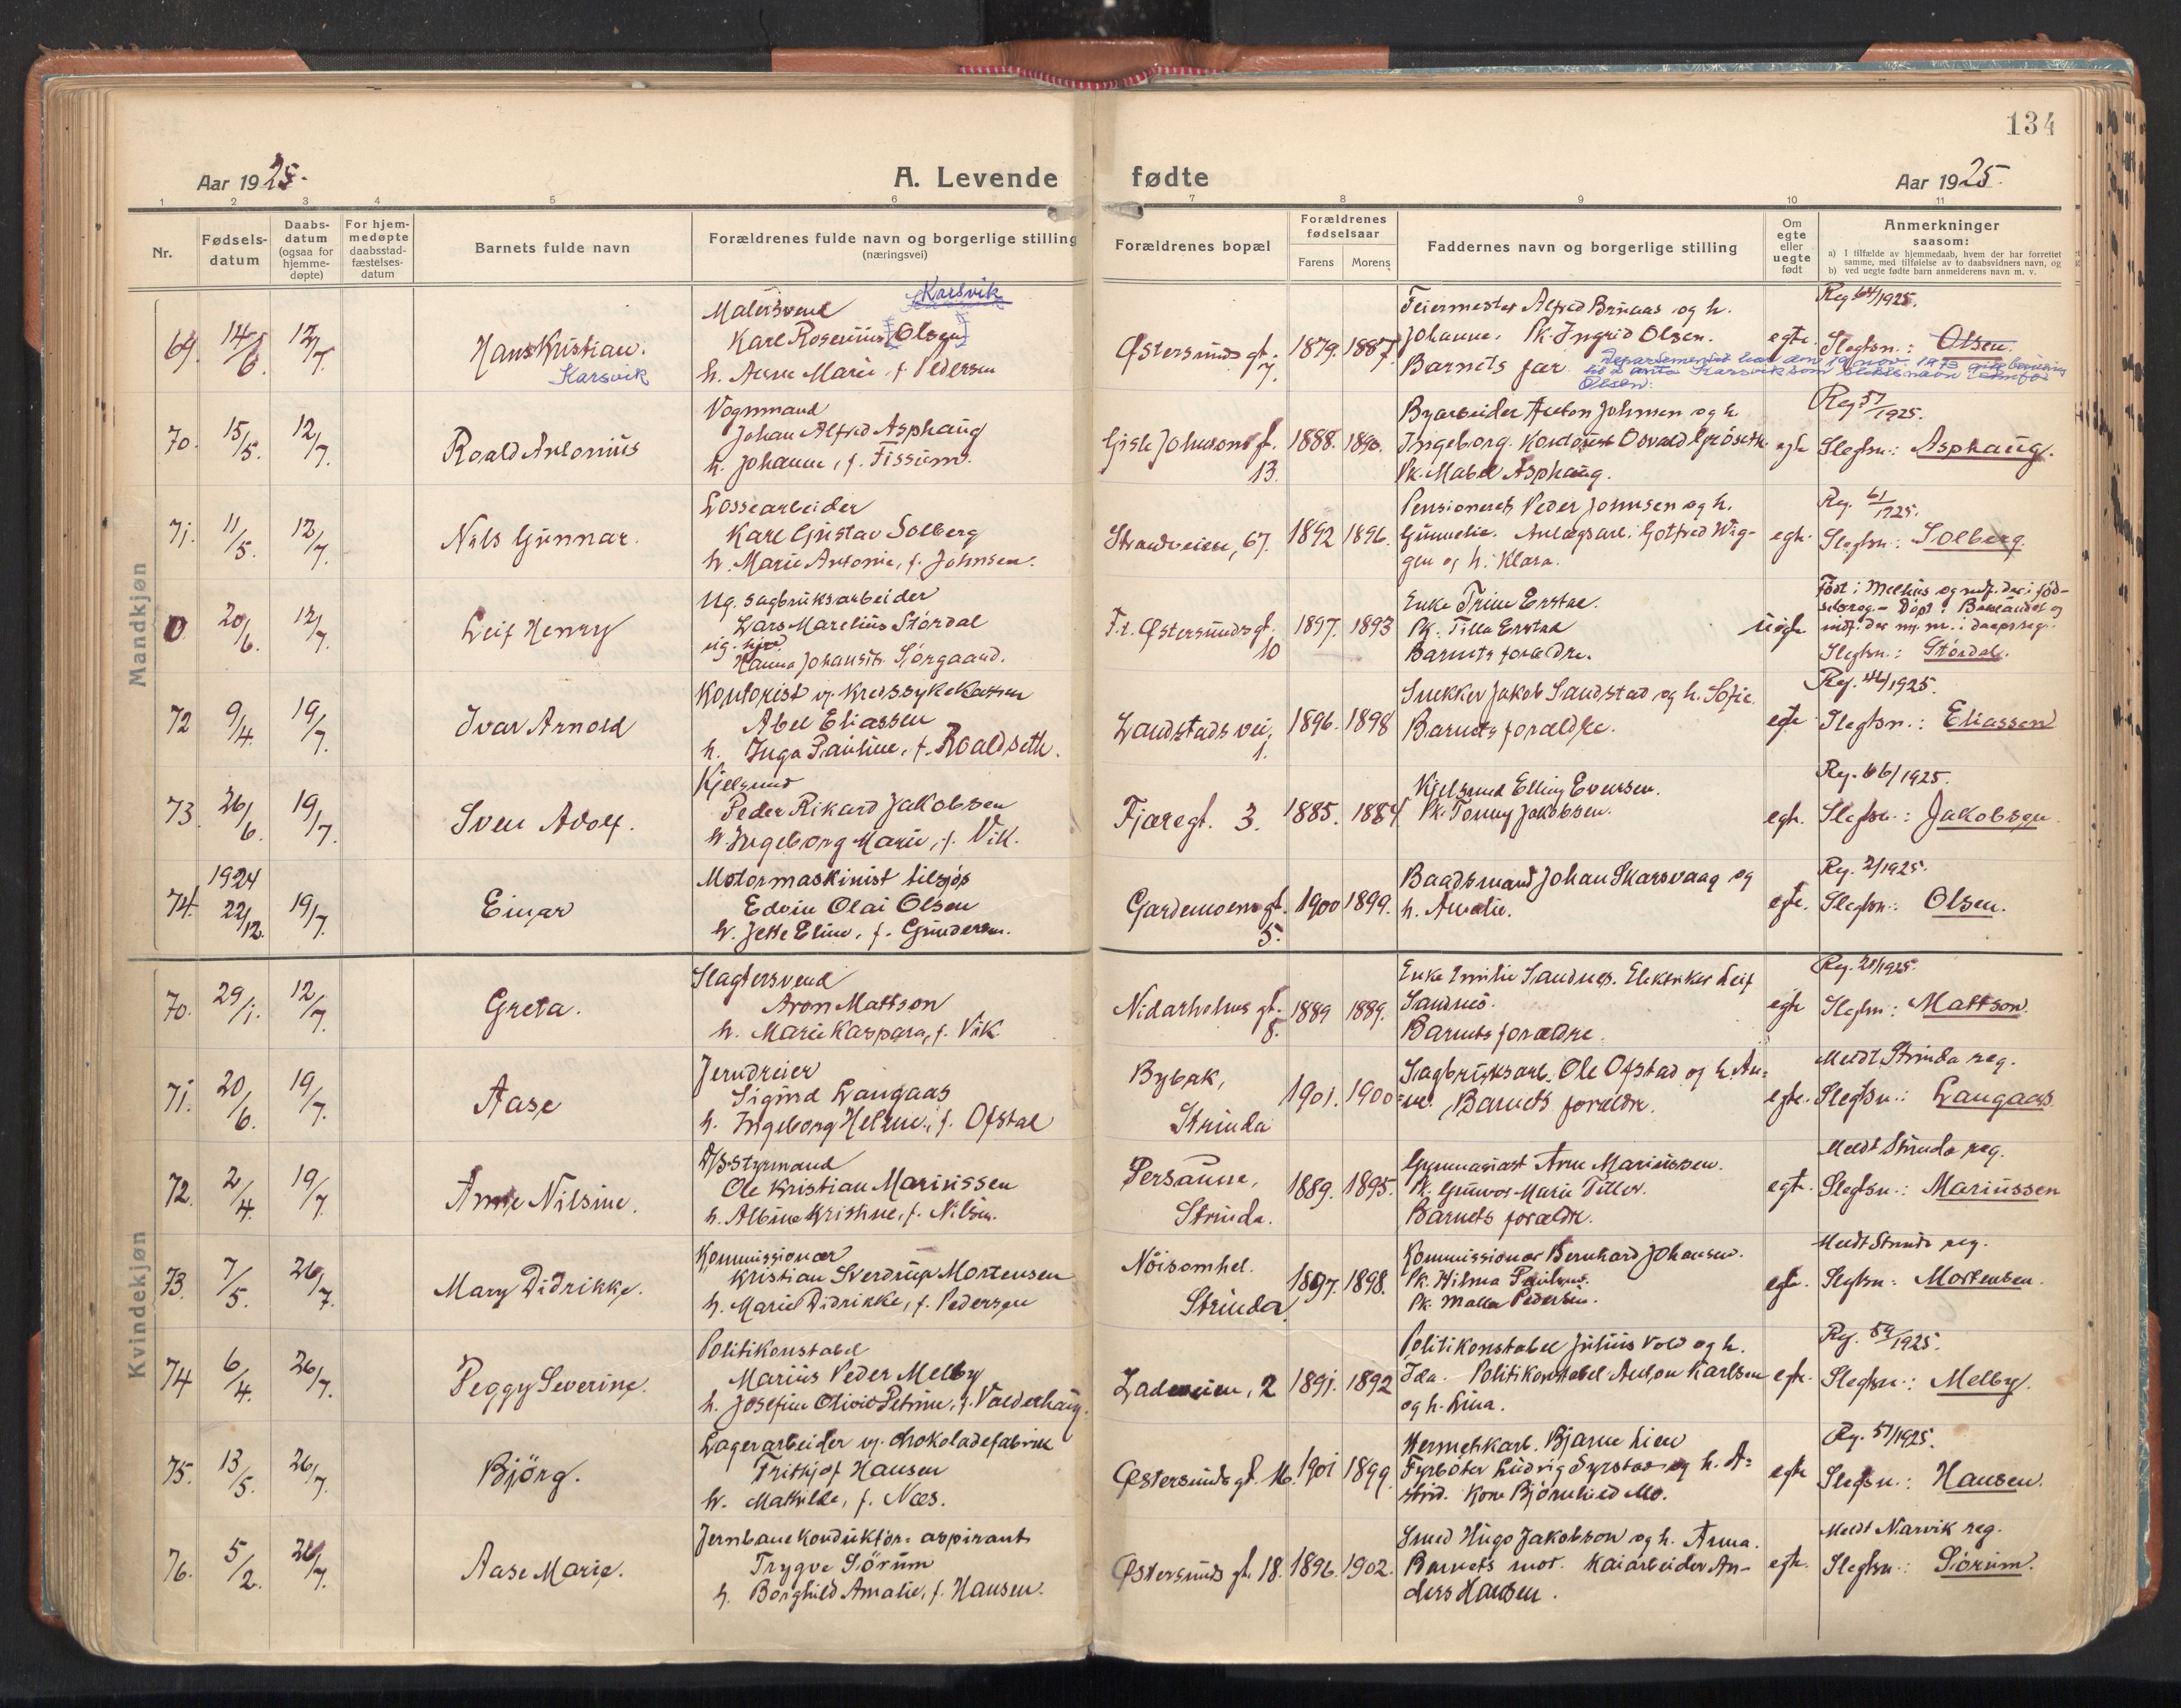 134
Aar 1925.
A. Levende fødte
Aar 1925.
1 2 3 4 5 6 7 8 9 10 11
Nr.
Fødsels-
datum
Daabs-
datum
(ogsaa for
hjemme-
døpte)
For hjem-
medøpte
daabsstad-
fæstelses-
datum
Barnets fulde navn
Forældrenes fulde navn og borgerlige stilling
(næringsvei)
Forældrenes bopæl
Forældrenes
fødselsaar
Farens Morens
Faddernes navn og borgerlige stilling
Om
egte
eller
uegte
født
Anmerkninger
saasom:
a) I tilfælde av hjemmedaab, hvem der har forrettet
samme, med tilføielse av to daabsvidners navn, og
b) ved uegte fødte barn anmelderens navn m. v.
Mandkjøn
69. 14/6. 12/7.
Hans Kristian.
Karsvik
Malersvend
Karsvik
Karl Rosenius Olsen
h. Anna Marie f. Pedersen
Østersunds gt.
7.
1879. 1887.
Feiermester Alfred Bruaas og h.
Johanne. Pk. Ingrid Olsen.
Barnets far
egte.
Reg 64/1925.
Slegtsn.: Olsen.
Departementet har den 19 nov. 1923
Olsen.
70. 15/5. 12/7.
Roald Antonius
Vognmand
Johan Alfred Asphaug
h. Johanne, f. Fissum.
Gisle Johnsons gt.
13.
1888. 1890.
Byarbeider Anton Johnsen og h
Ingeborg. Osvald Grøseth
Pk. Mabel Asphaug.
egte
Reg 57/1925.
Slegtsn.: Asphaug.
71. 11/5. 12/7.
Nils Gunnar.
Lossearbeider
Karl Gustav Solberg
h. Marie Antonie, f. Johnsen.
Strandveien, 67.
1892 1896.
Pensionerets Peder Johnsen og h.
Gunnelie. Anlægsarb. Gotfred Wig-
gen og h. Klara.
egte.
Reg. 61/1925.
Slegtsn.: Solberg.
0 20/6. 12/7.
Leif Henry
Ug. sagbruksarbeider
Lars Marelius Stördal
Hanna Sörgaard.
Fr. Østersunds gt.
10
1897. 1893
Enke Trine Erstad.
Pk. Tilla Erstad
Barnets forældre.
uegte
Födt i Melhus og indf. der i föd-
selsreg. - Döpt i Bakelandet og
indf. der nr. i daapsreg.
Slegtsn.: Stördal.
72 9/4. 19/7.
Ivar Arnold
Kontorist v. Kredssykekassen
Abel Eliassen
h. Inga Pauline, f. Roaldseth.
Landstads vei,
1.
1896. 1898
Snekker Jakob Sandstad og h. Sofie.
Barnets forældre.
egte
Reg. 44/1925.
Slegtsn.: Eliassen
73. 26/6. 19/7.
Sven Adolf.
Kjelsmed
Peder Rikard Jakobsen
h. Ingeborg Marie, f. Vik.
Fjæregt. 3.
1885. 1884
Kjelsmed Elling Evensen.
Pk. Tonny Jakobsen.
egte.
Reg. 66/1925.
Slegtsn.: Jakobsen.
74. 1924
22/12. 19/7.
Einar
Motormaskinist tilsjøs
Edvin Olai Olsen
h. Jette Eline, f. Gundersen.
Gardemoens gt.
5.
1900 1899.
Baadsmand Johan Skarsvaag og
h. Amalie.
egte.
Reg. 2/1925.
Slegtsn.: Olsen.
Kvindekjøn
70. 29/1. 12/7.
Greta.
Slagtersvend
Aron Mattson
h. Marie Kaspara, f. Vik
Nidarholms gt.
8.
1889 1889.
Enke Emilie Sandnes. Elektriker Leif
Sandnes.
Barnets forældre.
egte
Reg. 21/1925.
Slegtsn.: Mattson.
71. 20/6. 19/7.
Aase
Jerndreier
Sigurd Langaas
h. Ingeborg Helene, f. Ofstad
Bybak,
Strinda
1901. 1900
Sagbruksarb. Ole Ofstad og h. An-
ne. Barnets forældre.
egte.
Meldt Strinda reg.
Slegtsn.: Langaas.
72. 2/4. 19/7.
Anne Nilsine.
D/S styrmand
Ole Kristian Mariussen
h. Albine Kristine, f. Nilsen.
Persaune,
Strinda.
1889. 1895.
Gymnasiast Arne Mariussen.
Pk. Gunvor Marie Tiller.
Barnets forældre.
egte.
Meldt Strinda reg.
Slegtsn.: Mariussen
73. 7/5. 26/7.
Mary Didrikke.
Kommissionær
Kristian Sverdrup Mortensen
h. Marie Didrikke, f. Pedersen
Nöisomhed.
Strinda
1897. 1898.
Kommissionær Bernhard Johansen.
Pk. Hilma Paulsen.
Pk. Malla Pedersen.
egte.
Meldt Strinda reg.
Slegtsn: Mortensen.
74 6/4. 26/7.
Peggy Severine.
Politikonstabel
Marius Peder Melby
h. Josefine Olivie Petrine, f. Valderhaug.
Ladeveien, 2
1891. 1892
Politikonstabel Julius Vold og h.
Ida. Politikonstabel Anton Karlsen
og h. Lina.
egte.
Reg. 59/1925.
Slegtsn.: Melby.
75. 13/5. 26/7.
Bjørg.
Lagerarbeider v. chokoladefabrik
Frithjof Hansen
h. Mathilde, f. Næs.
Østersunds gt. 16.
1901 1899.
Hermetikarb. Bjarne Lien
Fyrböter Ludvig Syrstad og h. A-
strid. Kone Bjørnhild Mo.
egte
Reg. 51/1925.
Slegtsn.: Hansen.
76. 5/2. 26/7.
Aase Marie.
Jernbanekonduktør-aspirant
Trygve Sörum
h. Borghild Amalie, f. Hansen.
Østersunds gt. 18.
1896. 1902.
Smed Hugo Jakobson og h. Anna.
Barnets mor. Kaiarbeider An-
ders Hansen.
egte.
Meldt Narvik reg.
Slegtsn.: Sörum.